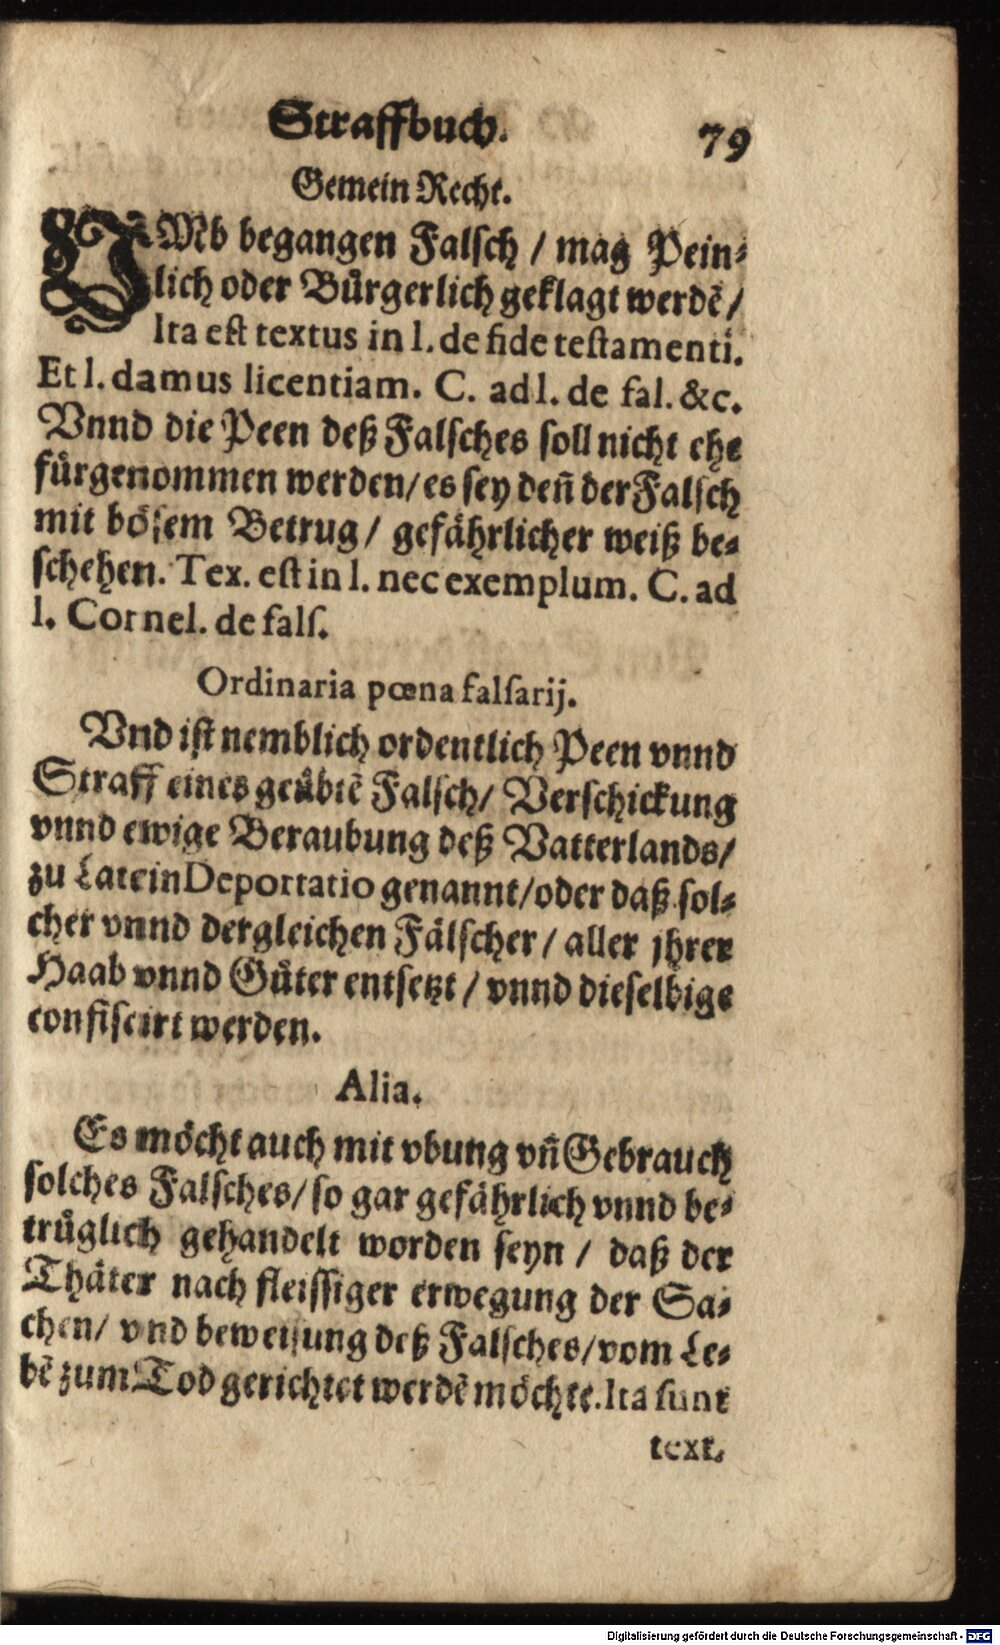 Straffbuch.
79
Gemein Recht.
VMb begangen Falsch / mag Pein-
lich oder Bürgerlich geklagt werdē /
Ita est textus in l. de fide testamenti.
Et l. damus licentiam. C. ad l. de fal. &c.
Vnnd die Peen deß Falsches soll nicht ehe
fürgenommen werden / es sey deñ der Falsch
mit bösem Betrug / gefährlicher weiß be-
schehen. Tex. est in l. nec exemplum. C. ad
l. Cornel. de falſ.
Ordinaria pœna falſarij.
Vnd ist nemblich ordentlich Peen vnnd
Straff eines geübtē Falsch / Verschickung
vnnd ewige Beraubung deß Vatterlands /
zu Latein Deportatio genannt / oder daß sol-
cher vnnd dergleichen Fälscher / aller jhrer
Haab vnnd Güter entsetzt / vnnd dieselbige
confiscirt werden.
Alia.
Es möcht auch mit vbung vñ Gebrauch
solches Falsches / so gar gefährlich vnnd be-
trüglich gehandelt worden seyn / daß der
Thäter nach fleissiger erwegung der Sa-
chen / vnd beweisung deß Falsches / vom Le-
bē zum Tod gerichtet werdē möchte. Ita sunt
text.
Digitalisierung gefördert durch die Deutsche Forschungsgemeinschaft - DFG